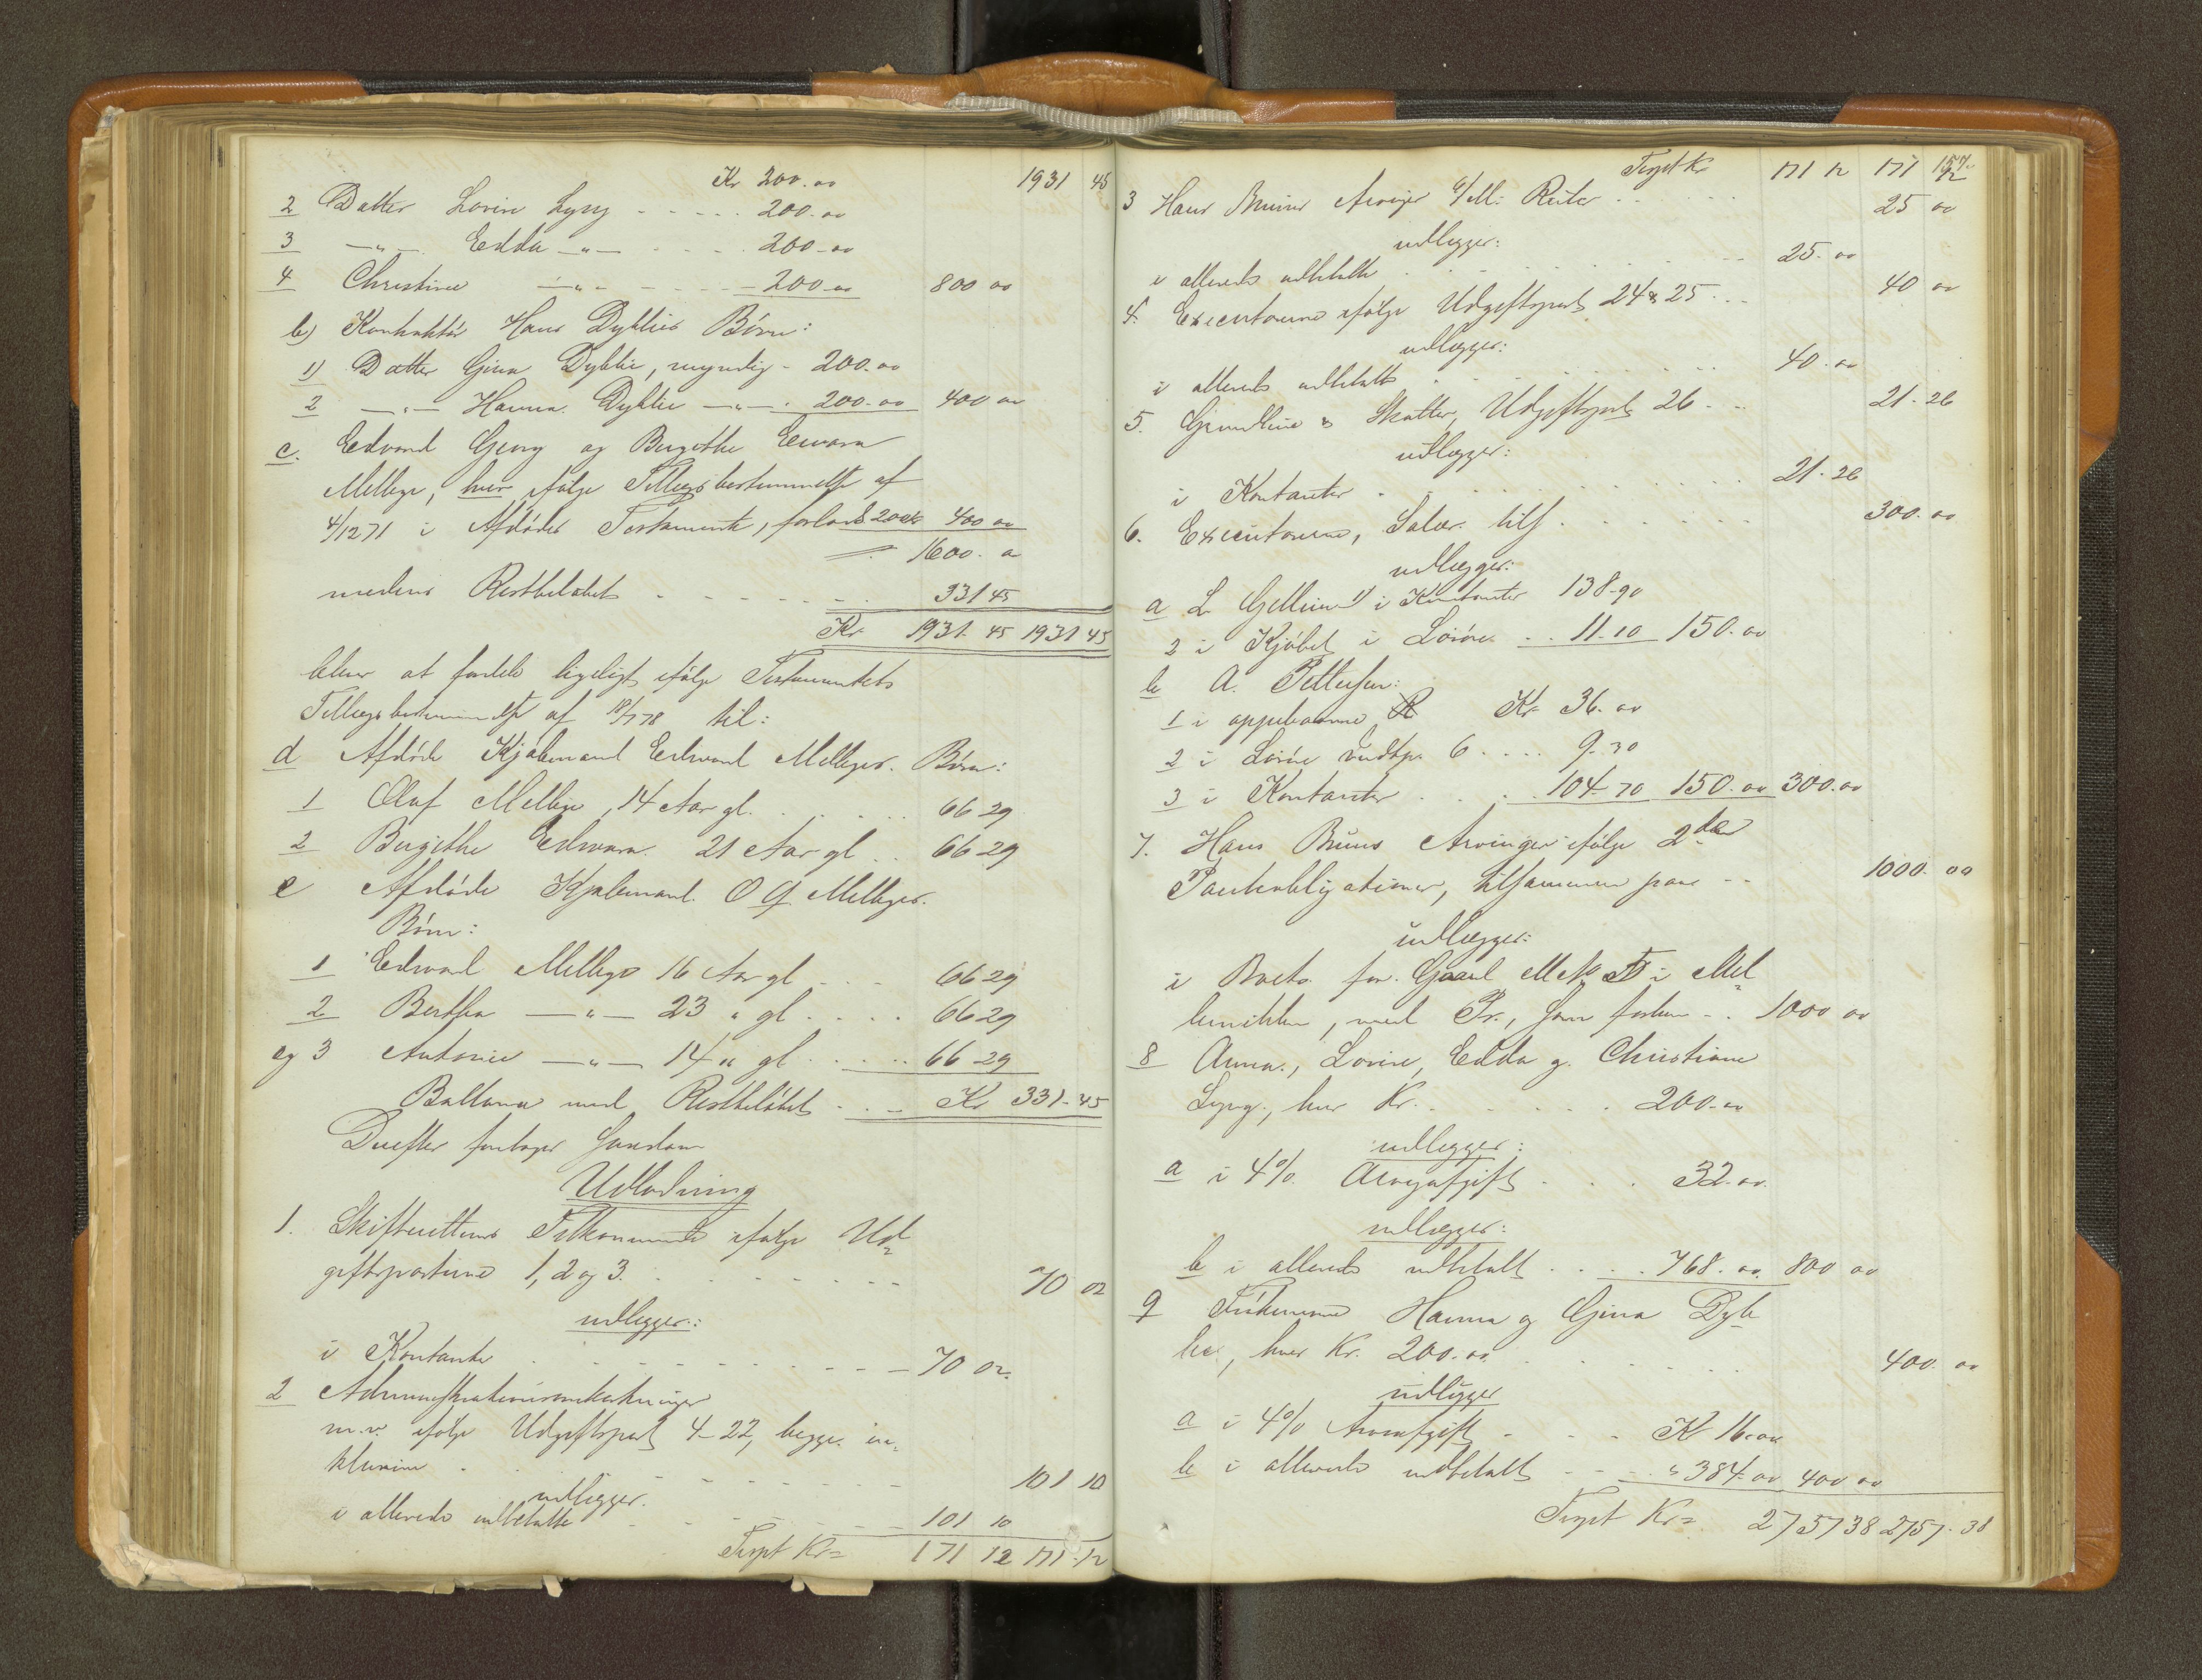 Kr 200.00 1931 45
2 Datter Lovise Lysg - - - - - 200.00
3 —"— Edda —"— - - - - 200-00
4 Christine —"— - - - - 200-00 800 00
b) Hans Dyblies Børn:
1) Datter Gina Dyblie, myndig - 200.00
2 —"— Hanna Dyblie —"— 200-00 400 00
c. Edvard Georg og Birgithe Edvara
Melbye, hver ifølge Tillægsbestemmelse af
4/12 71 i Afdødes Testamente, forlods 200 Kr 400 00
1600. 00
medens Restbeløbet - - - - - - 331 45
Kr. 1931. 45 1931 45
bliver at fordele ligeligt ifølge Testamentets
Tillægsbestemmelse af 18/7 78 til:
d Afdøde Kjøbmand Edvard Melbyes Børn:
1 Oluf Melbye, 14 Aar gl. . . . . . . 66 29
2 Birgithe Edvara 21 Aar gl . . 66 29
e Afdøde Kjøbmand O G Melbyes
Børn:
1 Edvard Melbye 16 Aar gl - - - 66 29
2 Berthea —"— 23 " gl . . . . 66 29
og 3 Antonie —"— 14 " gl . . . . . 66-29
Ballance med Restbeløbet - - - Kr 331-45
Derefter foretages saadan
Udlodning
1. Skifterettens Tilkommende ifølge Ud=
giftsposterne 1, 2 og 3. . . . . . . . . 70 02
udlægges:
i Kontante . . . . . . . . . . . 70 02.
2 Administrationsomkostninger
m.v. ifølge Udgiftspost 4-22, begge in=
klusive . . . . . . . . . . 101 10
udlægges.
i allerede udbetalte . . . . . . 101 10
Trspt Kr= 171 12 171.12
157.
Trspt Kr 171 12 171 12
3 Hans Bruuns Arvinger Reiter . . . . . 25 00
udlægges:
i allerede udbetalte . . . . . . . . . 25. 00
4. Executorerne ifølge Udgiftspost 24 & 25 . . . 40 00
udlægges:
i allerede udbetalt . . . . . . . . . 40. 00
5. Grundleie & Skatter, Udgiftspost 26 - . . 21-26
udlægges:
i Kontanter . . . . . . . . . . 21.26
6. Executorerne, Salær tils . . . . . . . 300. 00
udlægges:
a L Gellein 1) i Kontanter 138-90
2 i Kjøbet i Løsøre . . 11-10 150.00
b A. Pettersen:
1 i oppebaarne R Kr 36. 00
2 i Løsøre 6 . . . . 9.30
3 i Kontanter . . . . 104-70 150.00 300.00
7. Hans Bruuns Arvinger ifølge 2de
Panteobligationer, tilsammen paa - - 1000. 00
udlægges:
i Boets for. Gaard i Mel=
lemikken, med Pr., som forhen - . 1000 00
8 Anna, Lovise, Edda og Christiane
Lysg, hver Kr. . . . . . . 200-00
udlægges:
a i 4% Arveafgift . . . . 32.00
udlægges:
b i allerede udbetalt . . . . 768. 00. 800 00
9 Frøknerne Hanna og Gina Dyb=
lie, hver Kr. 200.00 . . . . . . . 400. 00
udlægges
a i 4% Arveafgift - - - Kr 16.00
b i allerede udbetalt - - - " 384.00 400 00
Trspt Kr= 2757 38 2757.38